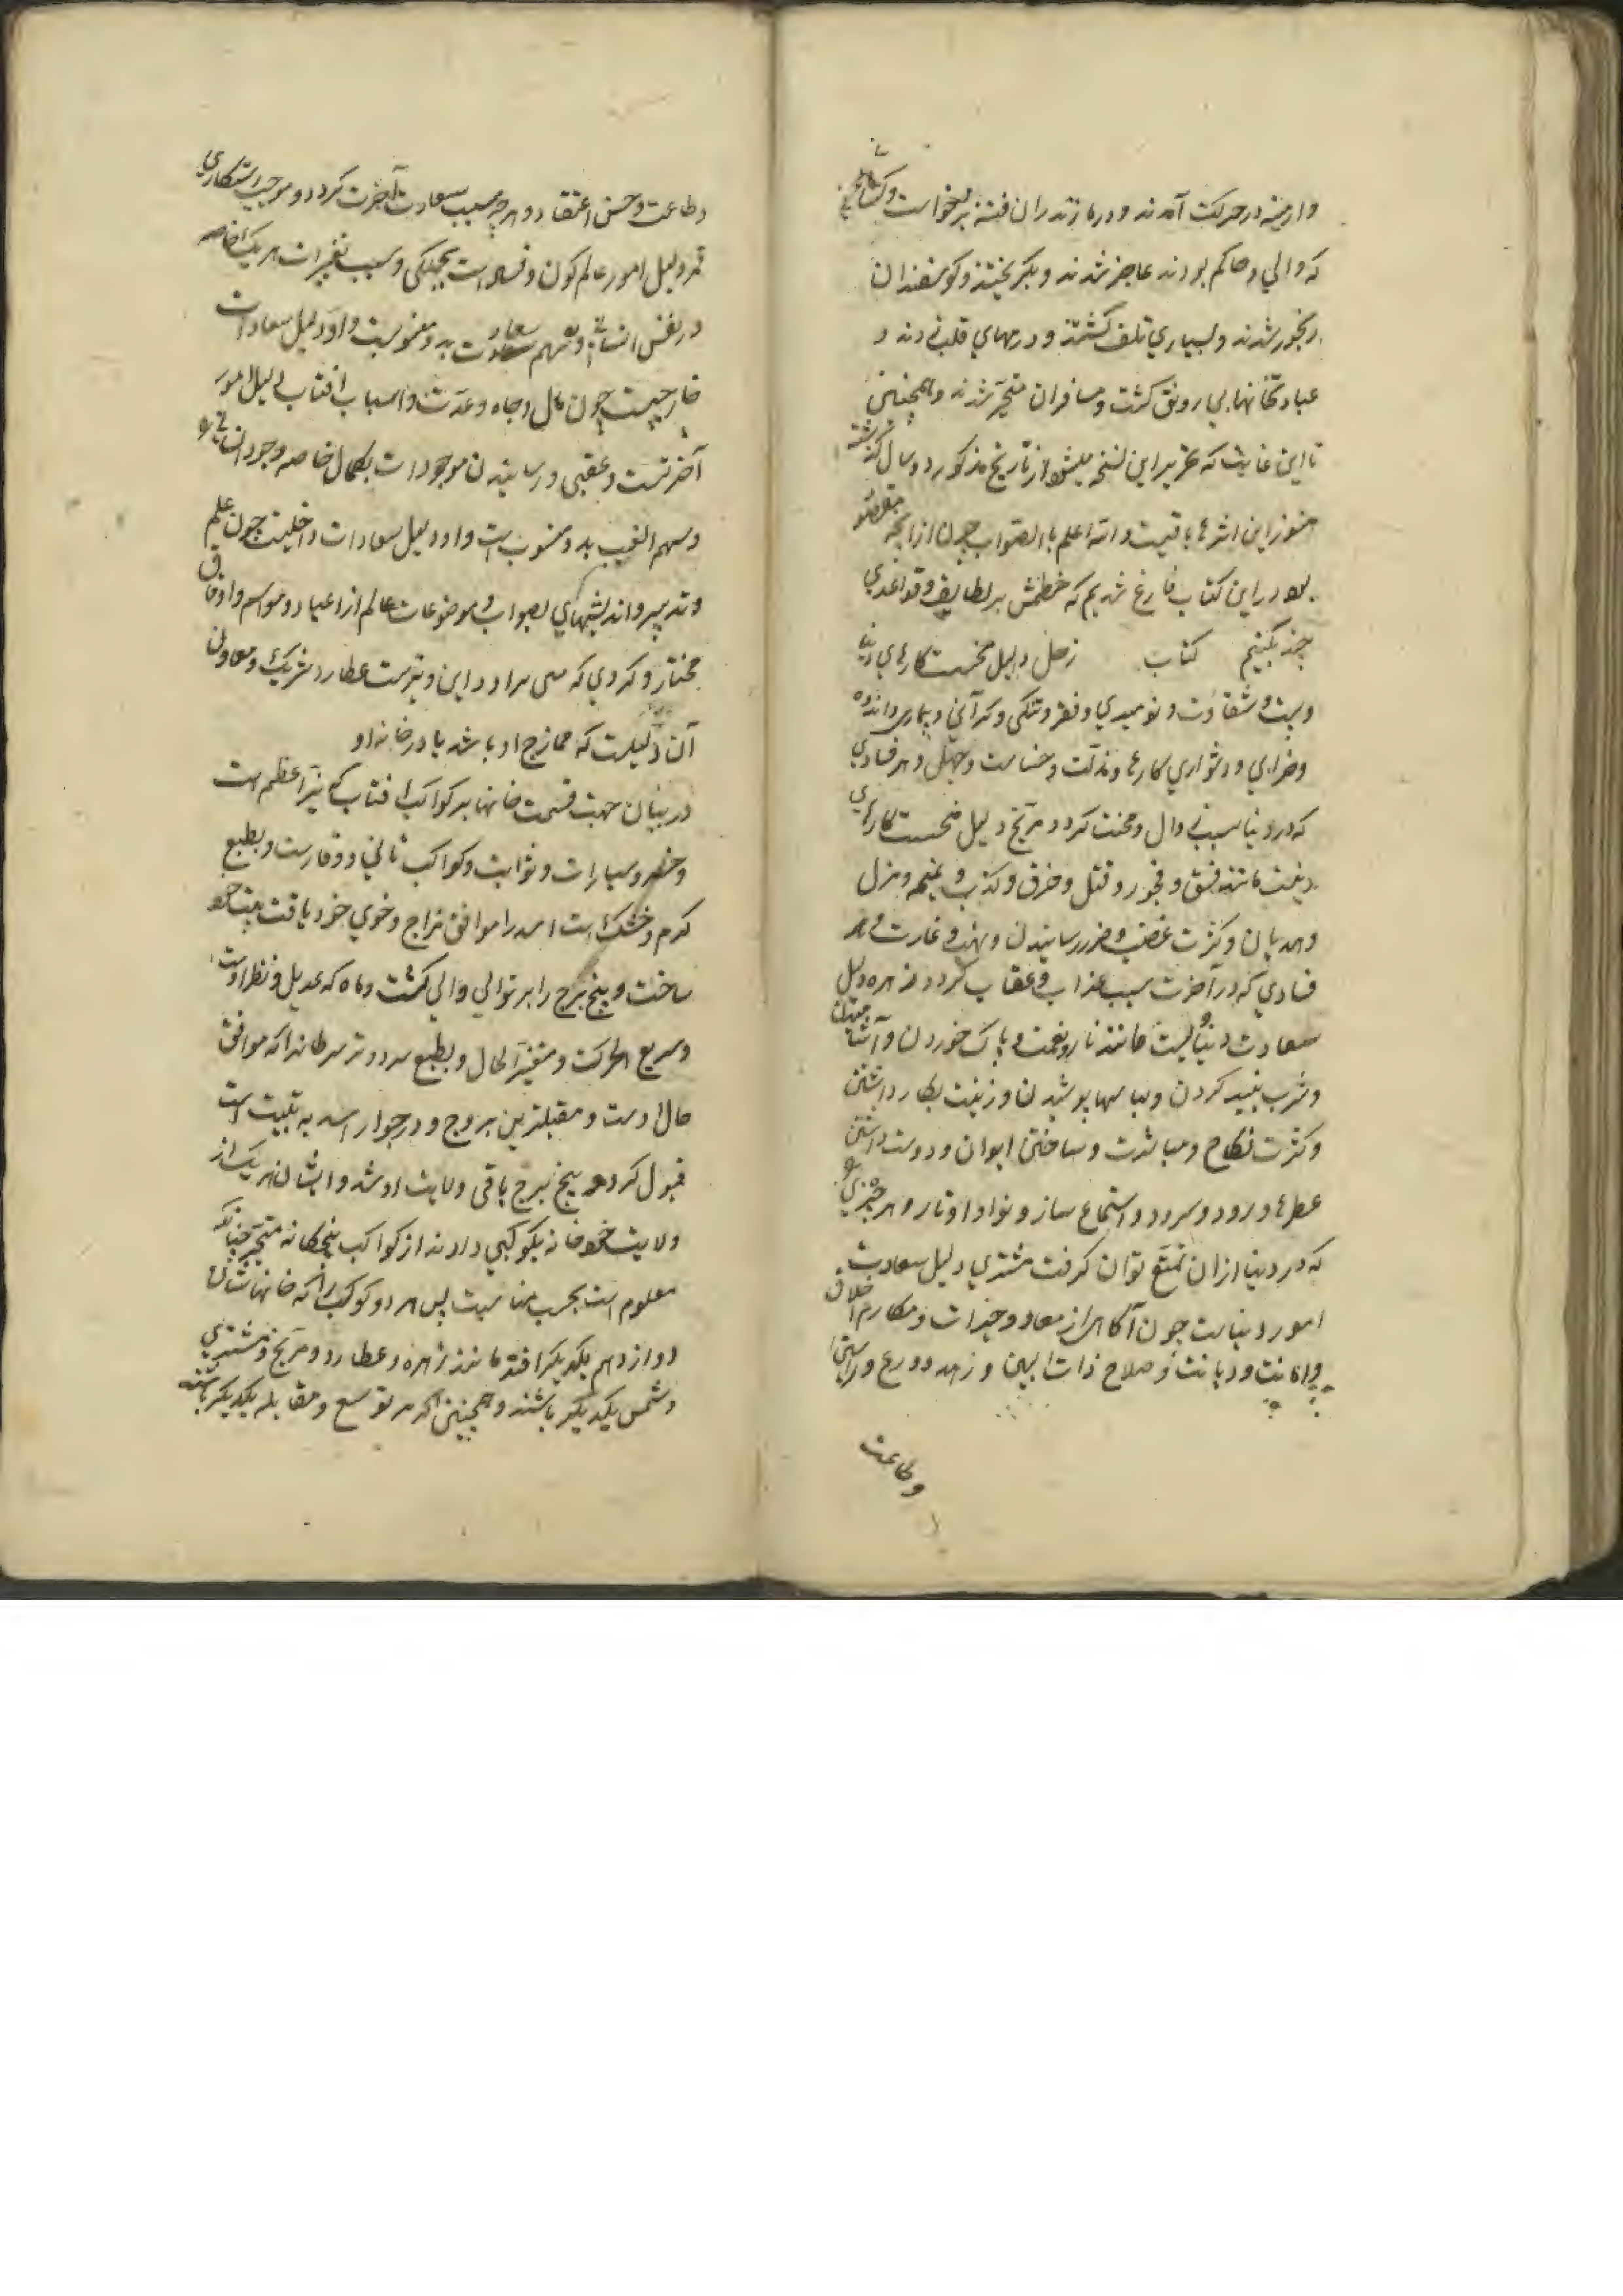 وارمنیه در حرکت آمدند ودر مازندران فتنه برخواست و
که والی و حاکم بودند عاجز شدند و بگریختند و کوسفندان
رنجور شدند و بسیاری تلف کشتند و درمهای قلب زدند و
عبادتخانها بی رونق کشت و مسافران متحیر شدند و همچنین
تا این غایت که تحریر این نسخه میشود از تاریخ مذکور دو سال کذشته
هنوز این اثرها باقیست والله اعلم بالصواب چون از آنچه مقصود
بود در این کتاب فارغ شدیم که ختمش بر لطایف و قواعدی
چند بکنیم کتاب زحل دلیل نحست کارهای دنیا
و شقاوت و نومیدی و فقر و تنکی و کرانی و بیماری و اندوه
وخرابی و دشواری کارها و مذلت و خساست و جهل و هر فسادی
که در دنیا سبب وبال و محنت کردد مریخ دلیل نحست کارهای
دینست مانند فسق و فجور و قتل و حرق و کذب و نمیمه و هزل
وهذیان و کثرت غضب و ضرر رسانیدن و نهب و غارت و هر
فسادی که در آخرت سبب عذاب و عقاب کردد زهره دلیل
سعادت دنیاییست مانند ناز و نعمت و پاک خوردن و آشامیدن
وشرب نبید کردن و لباسها پوشیدن و زینت بکار داشتن
وکثرت نکاح و مباشرت و ساختن ایوان و دوست داشتن
عطرها و رود و سرود و استماع ساز و نوا و اوتار و هر چیزی
که در دنیا ازان تمتع توان کرفت مشتری دلیل سعادت
امور دینیست چون آکاهی از معاد و خیرات و مکارم اخلاق
وامانت و دیانت و صلاح ذات البین و زهد و ورع و راستی
وطاعت
وطاعت و حسن اعتقاد و هر چه سبب سعادت آخرت کردد و موجب رستکاری
قمر دلیل امور عالم کون و فساد است بجملکی و سبب تغیرات هر یک خاصه
در نفس انسانی و سهم سعادت بدو منسوبست و او دلیل سعادات
خارجیست چون مال و جاه و عدت و اسباب افتاب دلیل امور
آخرتست و عقبی و رسانیدن موجودات بکمال خاصه وجود انسانی و
وسهم الغیب بدو منسوب است و او دلیل سعادات داخلیت چون علم
و تدبیر و اندیشهای بصواب و موضوعات عالم از اعیاد و مواسم و اوقاف
مختار و کردی که سی مراد در این و ترست عطارد شریک و معاون
آن دلیلست که ممازج او باشد یا در خانه او
در بیان جهت قسمت خانها بر کواکب افتاب که نیر اعظم است
وخسرو سیارات و ثوابت و کواکب ثانی و وقارست و بطبع
کرم و خشک است اسد را موافق مزاج و خوی خود یافت بیت خود
ساخت و پنج برج را بر توالی والی کشت و ماه که عدیل و نظر اوست
وسریع الحرکت و متغیر الحال و بطبع سرد و تر سرطانرا که موافق
حال اوست و مقبلترین بروج و در جوار اسد به بیت است
قبول کرد و پنج برج باقی ولایت او شد و ایشان هر یک از
ولایت خود خانه بکوکبی دادند از کواکب پنجکانه متحیره چنانکه
معلوم است بحسب مناسبت پس هر دو کوکب را که خانهاشان
دوازدهم یکدیکر افتد مانند زهره و عطارد و مریخ و مشتری
دشمن یکدیکر باشند و همچنین اکر در تربیع و مقابله یکدیکر باشند